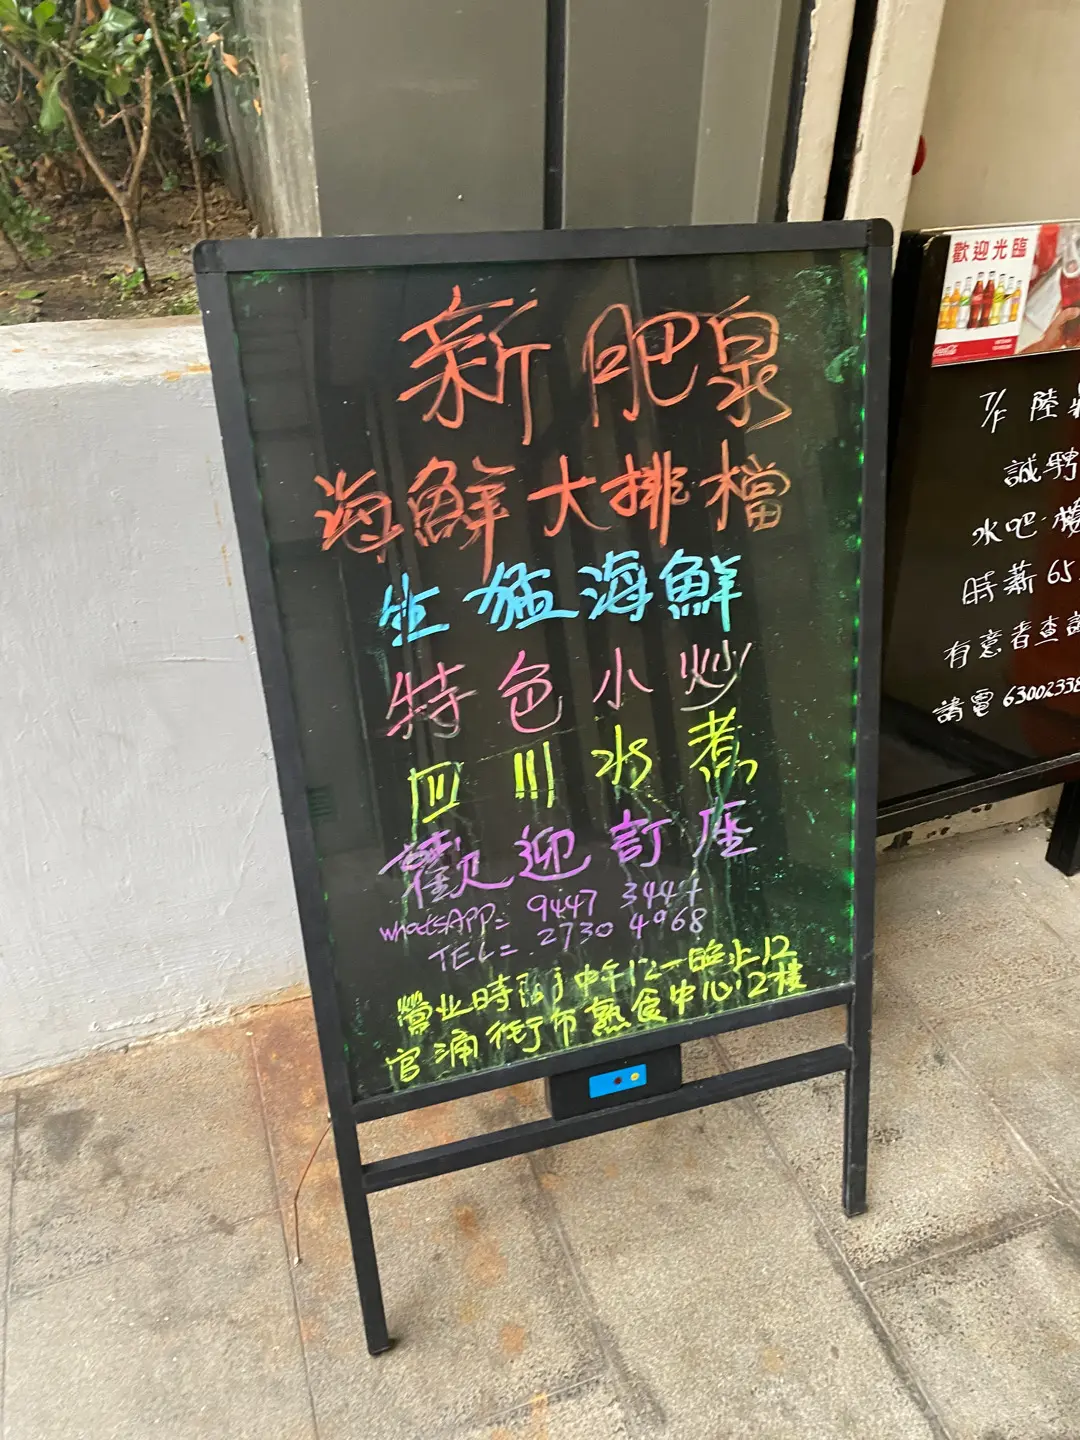 新肥泉
海鮮大排檔
生猛海鮮
特色小炒
四川水煮
歡迎訂座
WhatsAPP= 9447 3444
TEL= 2730 4968
營业時间中午12-臨上12
官涌街市熟食中心2樓
歡迎光臨
Coca-Cola
陸
誠聘
水吧
時薪65
有意者查詢
請電 63002338